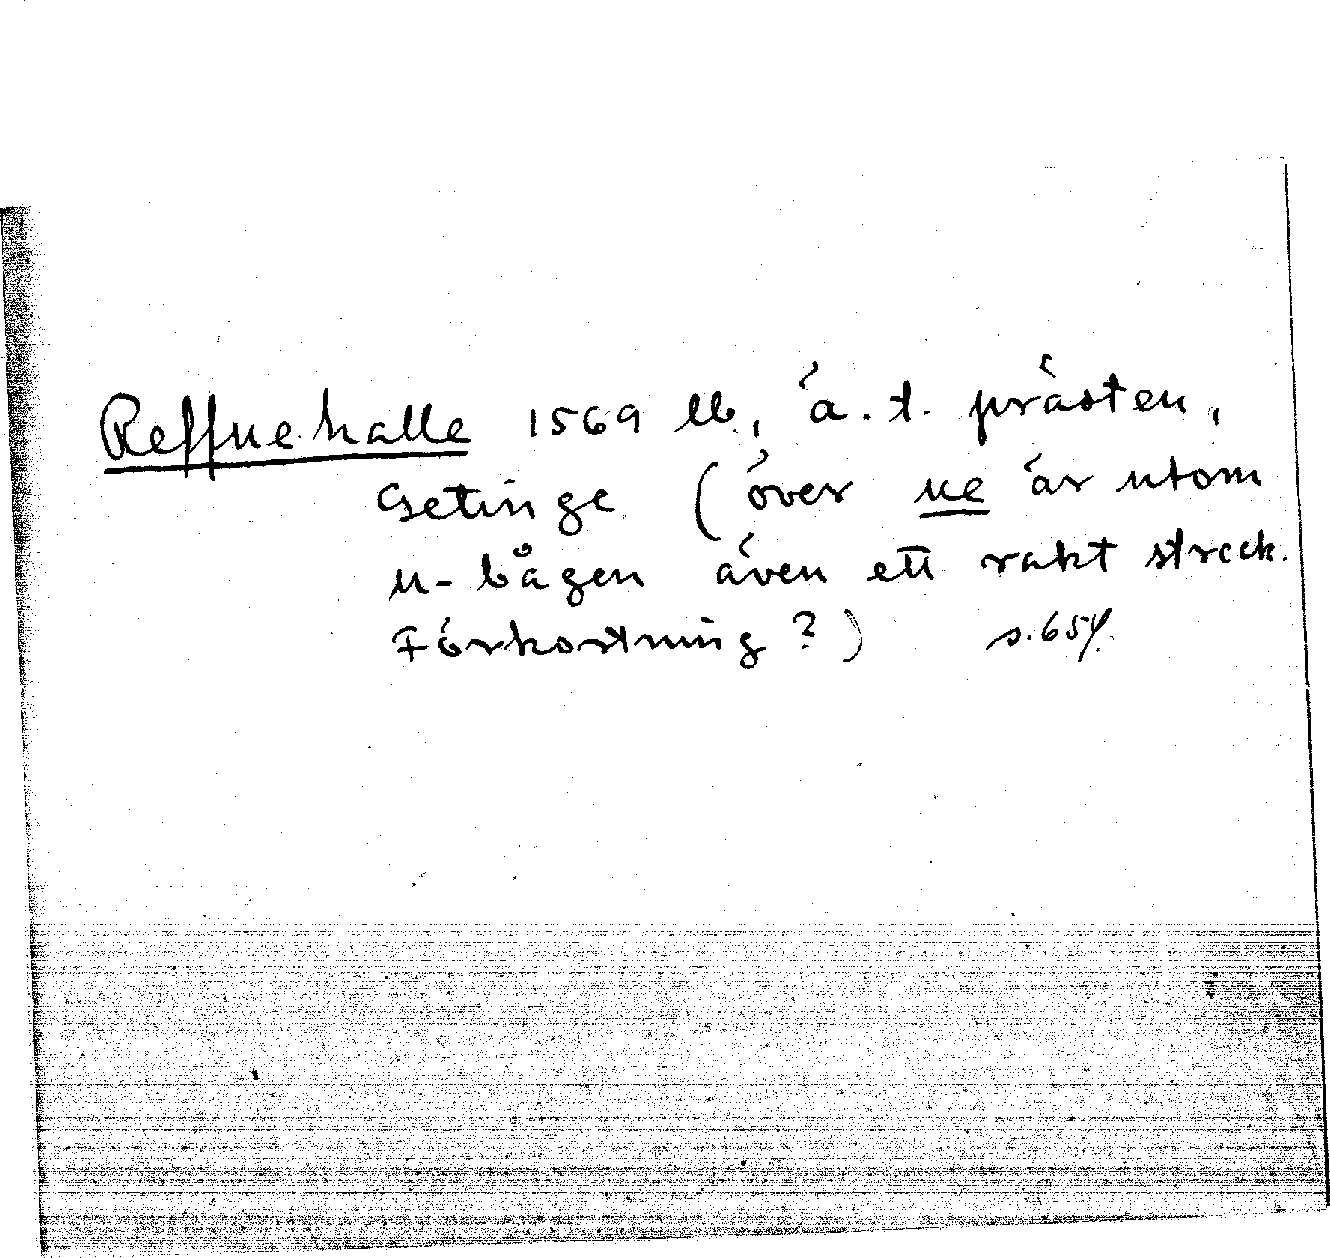 Reffue halle 1569 lb., å.t. prästen,
Getinge (över ue är utom
u-bågen även ett rakt streck.
Förkortning?) s.657.